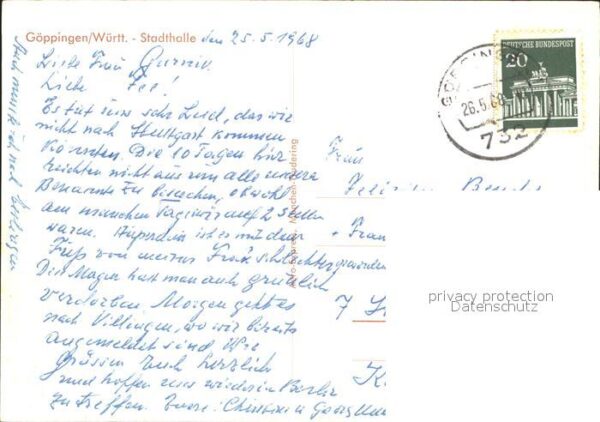 Göppingen/Württ. - Stadthalle den 25.5.1968
Liebe Frau
Liebe Fee!
Es tut uns sehr Leid, das wir
nicht nach Stuttgart kommen
Konnten. Die 10 Tagen hier
reichten nicht aus um alle unsere
Bekannte zu besuchen, obwohl
an manchen Tagen wir auf 2 Stellen
waren. Außerdem ist es mit dem
Fuß von meiner Frau schlechter geworden
Den Magen hat man auch gründlich
verdorben Morgen geht es
nach Villingen, wo wir bereits
angemeldet sind Wir
Grüssen Euch herzlich
und hoffen uns wieder in Berlin
zu treffen. Eure: und Georg
Auch muss ich nach Esslingen
DEUTSCHE BUNDESPOST
20
GÖPPINGEN
26.5.68
732
Frau
Frau
7
K
privacy protection
Datenschutz